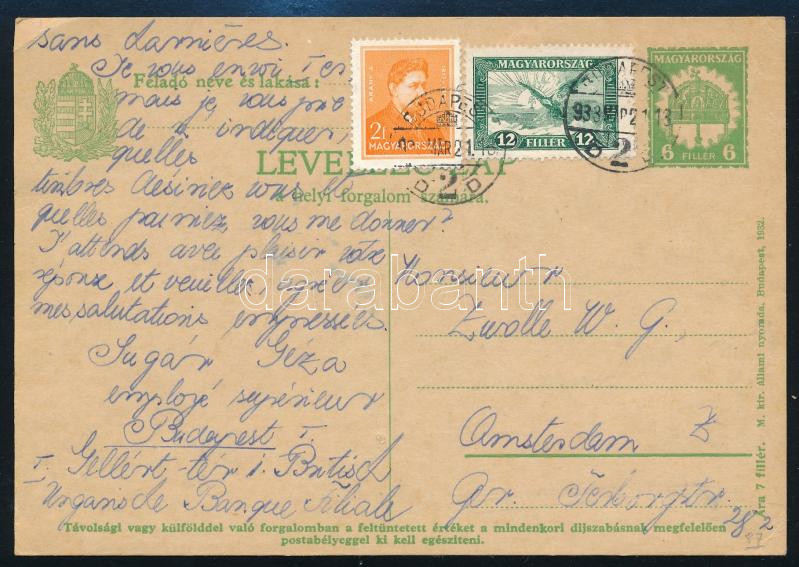 sans charnières.
Je vous envoi les
mais je vous prie
de m'indiquer,
quelles
timbres désiriez vous et
quelles pouviez vous me donner?
J'attends avec plaisir votre
réponse et veuillez agréer
mes salutations empressées.
Sugár Géza
employé supérieur
Budapest I.
I. Gellért-tér 1. Britisch
Ungarische Banque Filiale
Feladó neve és lakása:
LEVELEZŐLAP
a helyi forgalom számára.
ARANY J.
2f
MAGYARORSZÁG
MAGYARORSZÁG
12 FILLÉR 12
MAGYARORSZÁG
6 FILLÉR 6
BUDAPEST
MAR 21
2
BUDAPEST
933 21 13
2
Monsieur
Zwolle W. G.,
Amsterdam Z
Gov.
28 2
87
Távolsági vagy külfölddel való forgalomban a feltüntetett értéket a mindenkori díjszabásnak megfelelően
postabélyeggel ki kell egészíteni.
Ára 7 fillér. M. kir. állami nyomda, Budapest, 1932.
darabanth